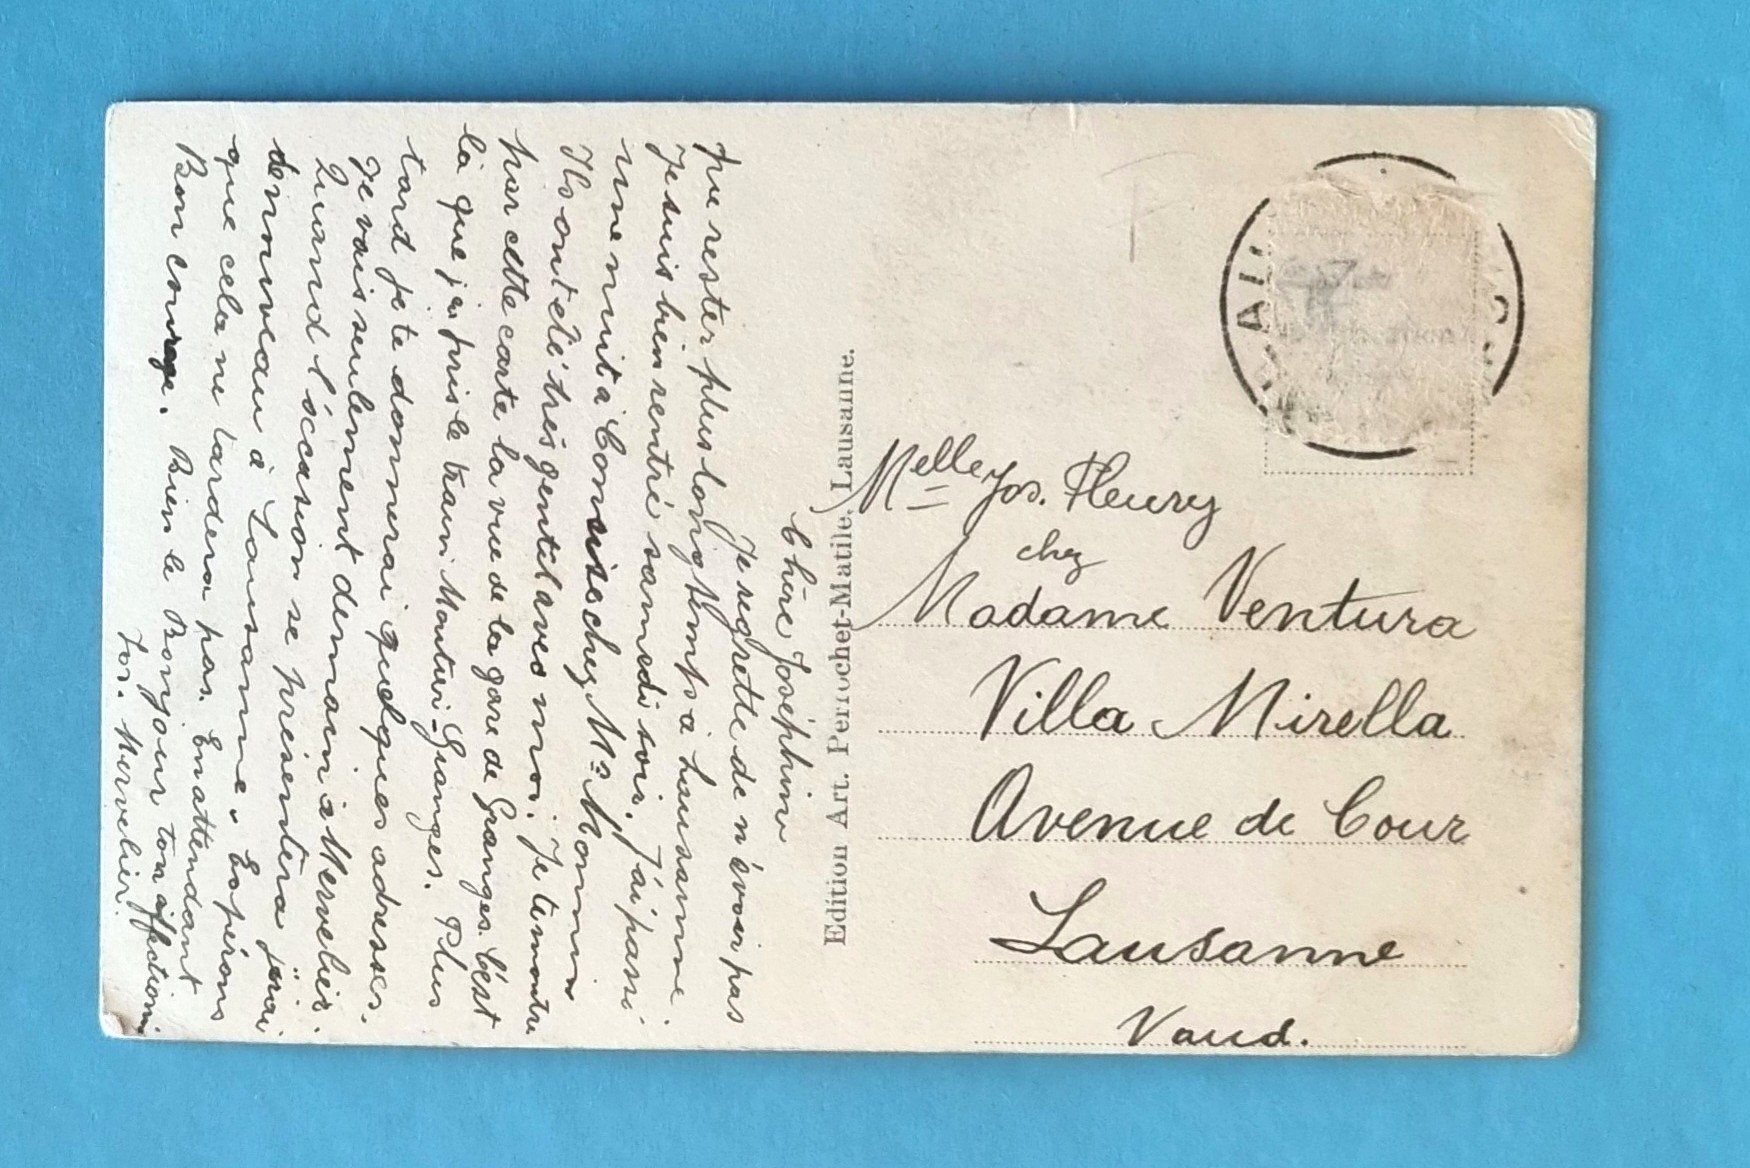 Chère Joséphine
Je regrette de n'avoir pas
pu rester plus longtemps à Lausanne
Je suis bien rentré samedi soir. J'ai passé
une nuit à chez Mme
Ils ont été très gentil avec moi. Je te montre
par cette carte la vue de la gare de Granges. C'est
là que j'ai pris le train Moutier-Granges. Plus
tard je te donnerai quelques adresses.
Je vais seulement demain à Mervelier.
Quand l'occasion se présentera j'irai
de nouveau à Lausanne. Espérons
que cela ne tardera pas. En attendant
Bon courage. Bien le Bonjour ton affectionné
Jos. Mervelier.
Edition Art. Perrochet-Matile, Lausanne.
Melle Jos. Fleury
chez
Madame Ventura
Villa Mirella
Avenue de Cour
Lausanne
Vaud.